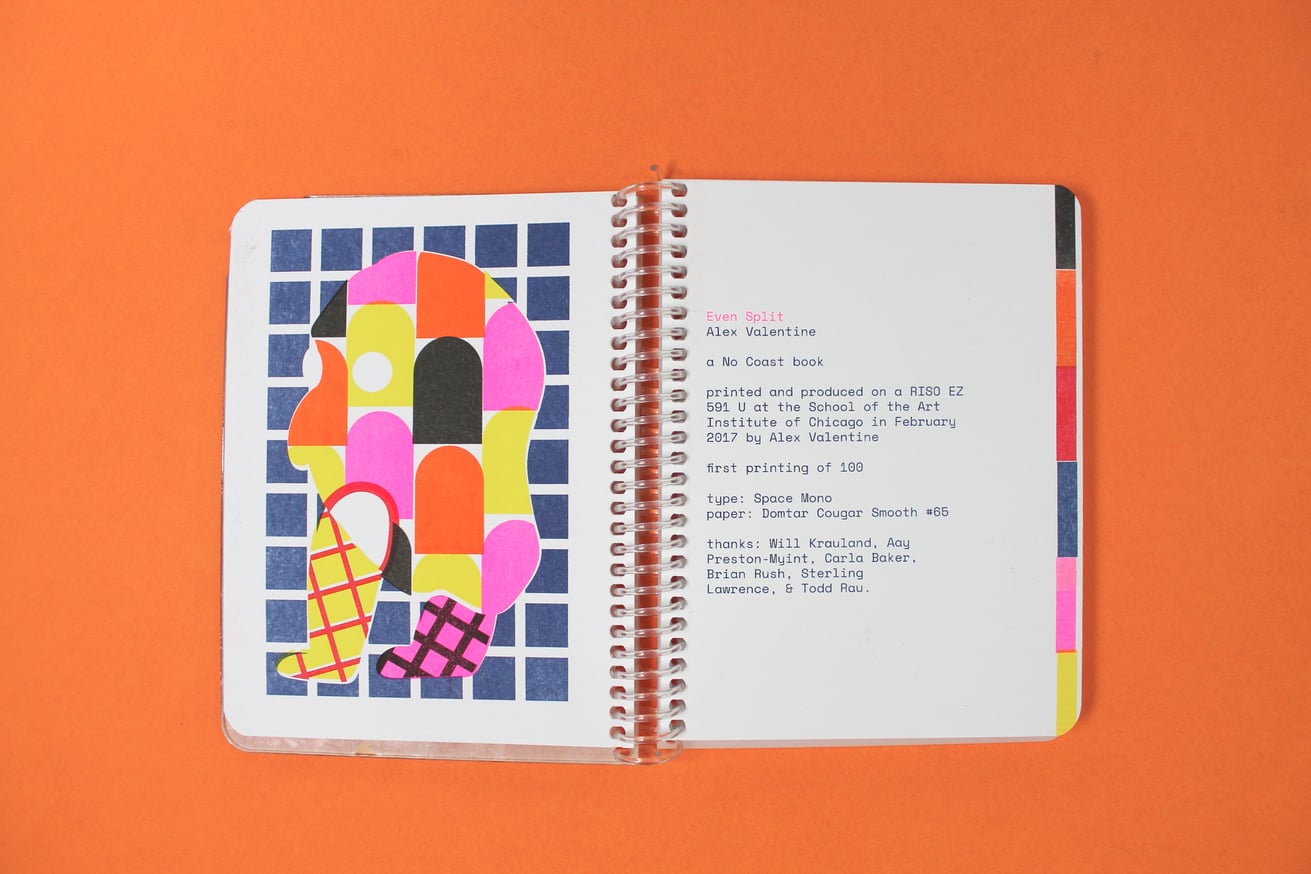 Even Split
Alex Valentine
a No Coast book
printed and produced on a RISO EZ
591 U at the School of the Art
Institute of Chicago in February
2017 by Alex Valentine
first printing of 100
type: Space Mono
paper: Domtar Cougar Smooth #65
thanks: Will Krauland, Aay
Preston-Myint, Carla Baker,
Brian Rush, Sterling
Lawrence, & Todd Rau.